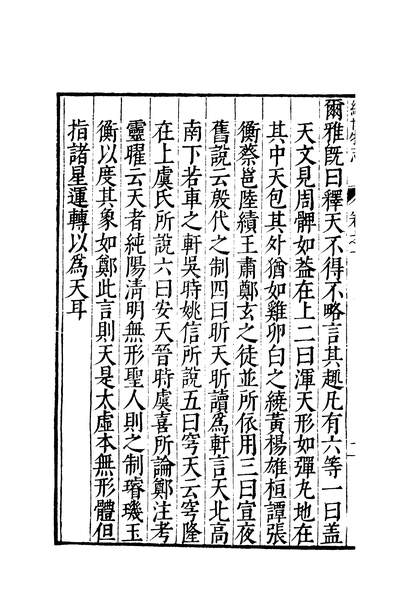 爾雅既曰釋天不得不略言其趣凡有六等一曰盖
天文見周髀如葢在上二曰渾天形如彈丸地在
其中天包其外猶如雞卵白之繞黃楊雄桓譚張
衡蔡邕陸績王肅鄭玄之徒並所依用三曰宣夜
舊說云殷代之制四曰昕天昕讀爲軒言天北高
南下若車之軒吳時姚信所說五曰穹天云穹隆
在上虞氏所說六曰安天晉時虞喜所論鄭注考
靈曜云天者純陽清明無形聖人則之制璿璣玉
衡以度其象如鄭此言則天是太虛本無形體但
指諸星運轉以爲天耳